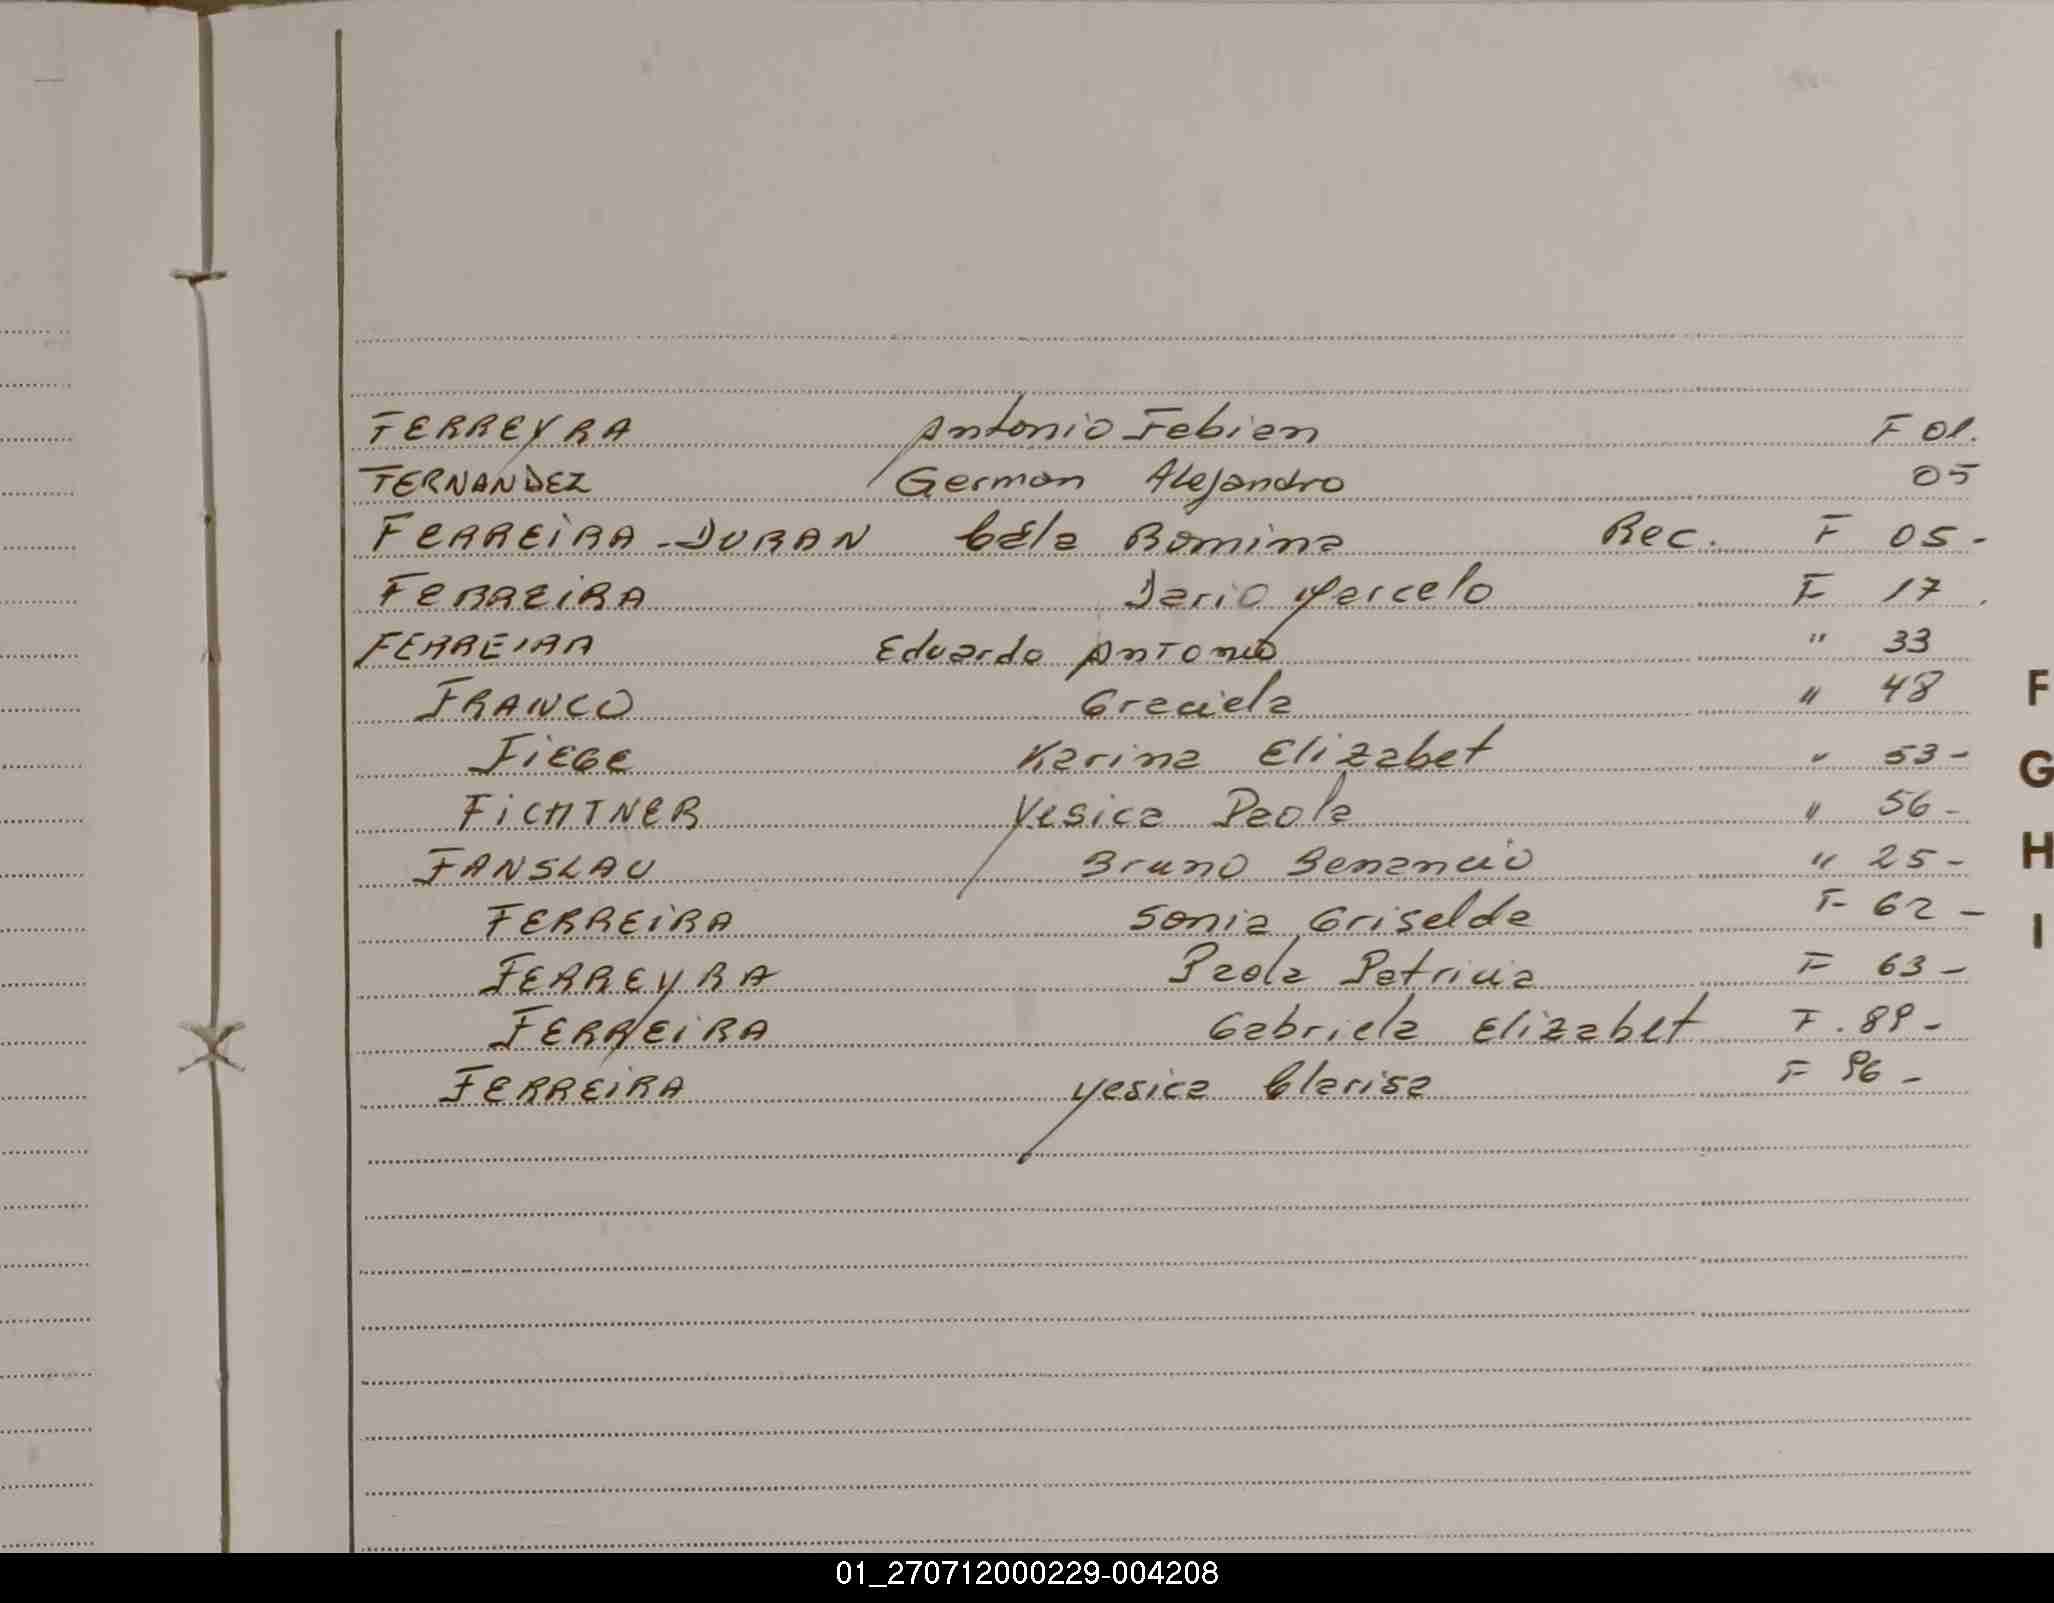 FERREYRA Antonio Fabian F 01.
FERNANDEZ German Alejandro 05
FERREiRA-DURAN Romina Rec. F 05-
FERREiRA Dario Marcelo F 17
FERREIRA Eduardo Antonio " 33
FRANCO Graciela " 48
FiEGE Karina Elizabet " 53-
FiCHTNER Yesica Paola " 56-
FANSLAU Bruno Benancio " 25-
FERREiRA Sonia Griselda F 62-
FERREYRA Paola Patricia F 63-
FERREiRA Gabriela Elizabet F. 89-
FERREiRA Yesica Clarisa F 96-
F
G
H
I
01_270712000229-004208